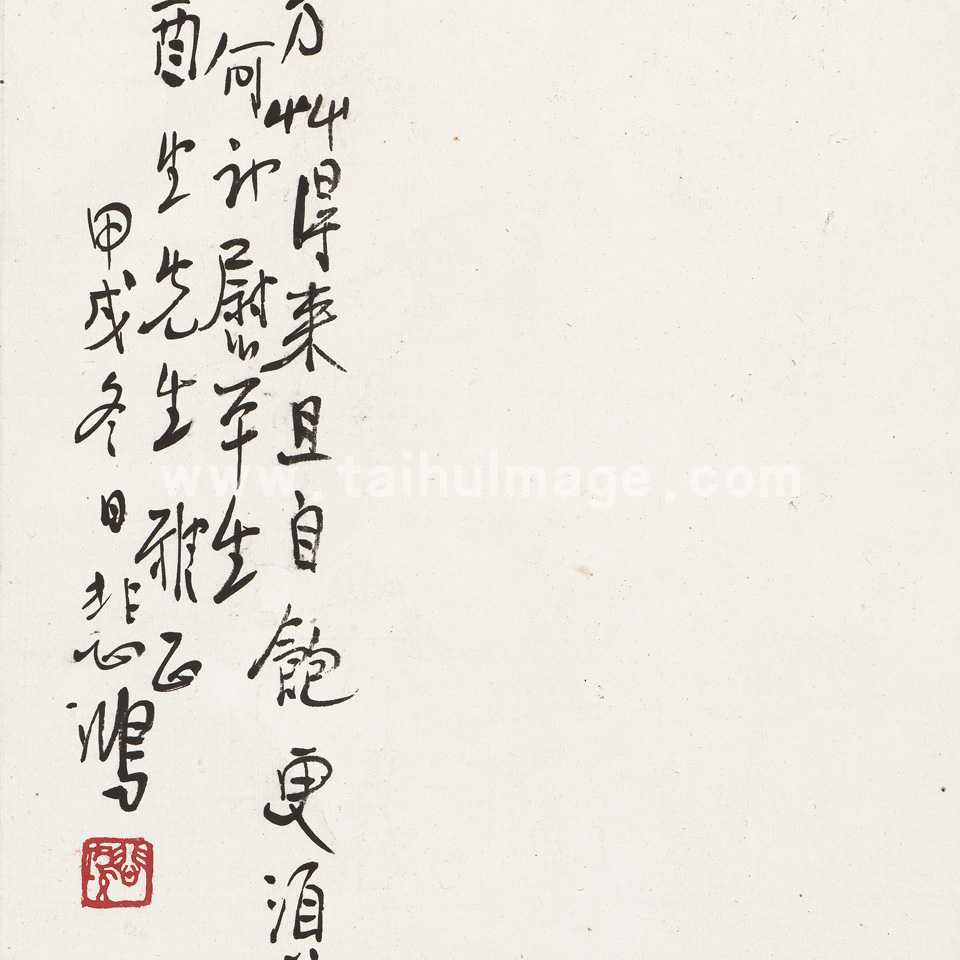 艸得来且自飽更須
何計慰平生
酉生先生雅正
甲戌冬日悲鴻
www.taihuImage.com